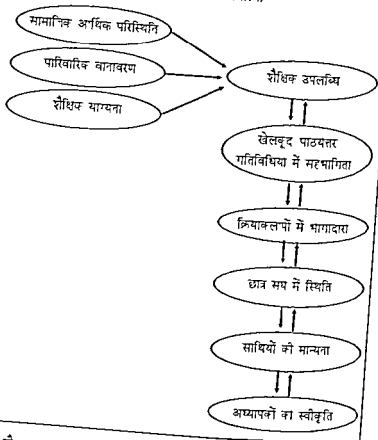 सामाजिक आर्थिक परिस्थिति
पारिवारिक वातावरण
शैक्षिक योग्यता
शैक्षिक उपलब्धि
खेलकूद पाठयतर
गतिविधिया में सहभागिता
क्रियाकलापों में भागादारा
छात्र सघ में स्थिति
साथियों की मान्यता
अध्यापकों का स्वीकृति